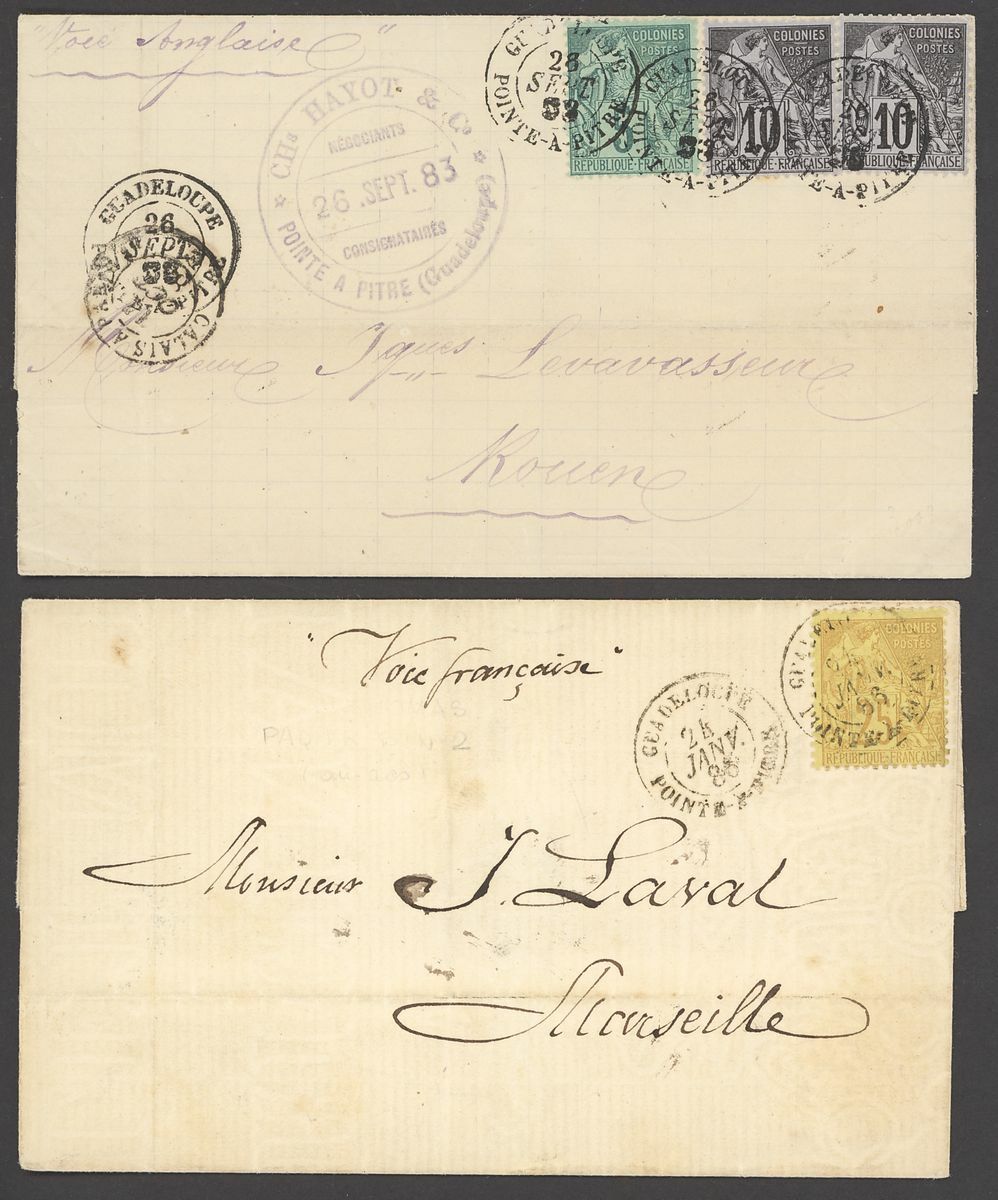 "Voie Anglaise"
GUADELOUPE
26
SEPT
83
POINTE-A-PITRE
COLONIES
POSTES
5
RÉPUBLIQUE-FRANÇAISE
GUADELOUPE
26
SEPT
83
POINTE-A-PITRE
COLONIES
POSTES
10
RÉPUBLIQUE-FRANÇAISE
COLONIES
POSTES
10
RÉPUBLIQUE-FRANÇAISE
CHs HAYOT & Co
NÉGOCIANTS
26 .SEPT. 83
CONSIGNATAIRES
POINTE A PITRE (Guadeloupe)
GUADELOUPE
26
SEPT
83
CALAIS A PARIS
Monsieur Jques Levavasseur
Rouen
"Voie française"
GUADELOUPE
24
JANV.
86
POINTE-A-PITRE
GUADELOUPE
24
JANV.
86
POINTE-A-PITRE
COLONIES
POSTES
25
RÉPUBLIQUE-FRANÇAISE
Monsieur J. Laval
Marseille